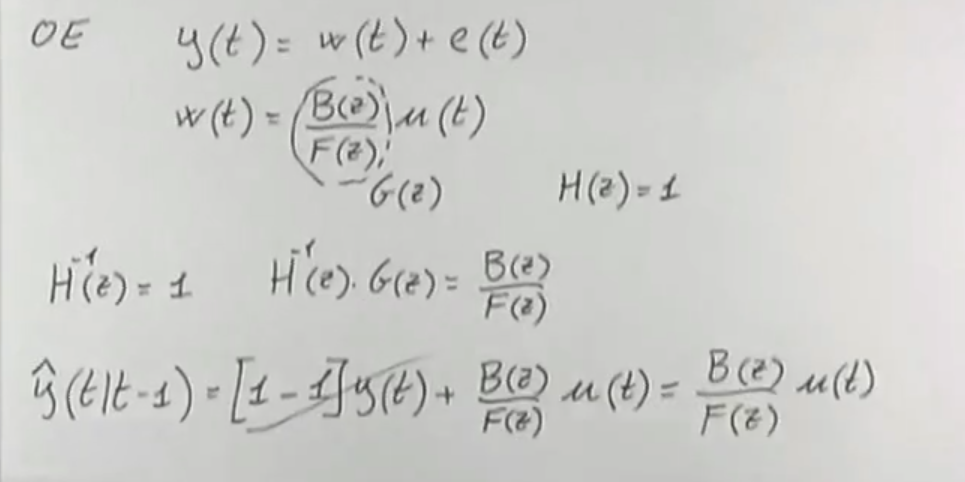 OE y(t) = w(t) + e(t)
w(t) = (B(z)/F(z)) u(t)
G(z) H(z) = 1
H⁻¹(z) = 1 H⁻¹(z) · G(z) = B(z)/F(z)
ŷ(t|t-1) = [1 - 1] y(t) + B(z)/F(z) u(t) = B(z)/F(z) u(t)